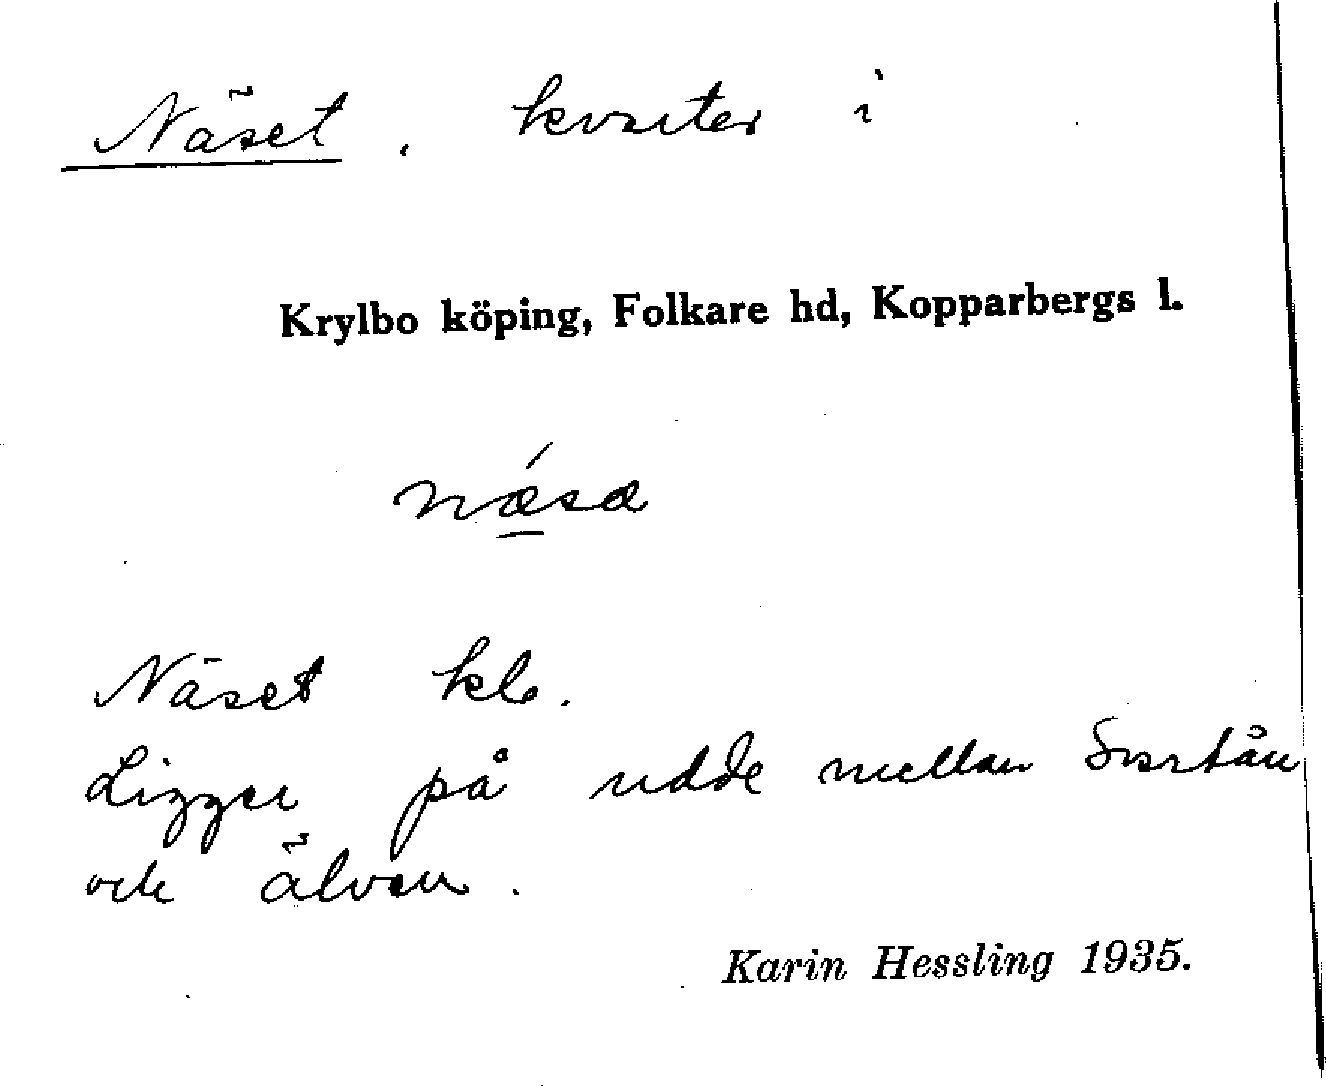 Näset, kvarter i
Krylbo köping, Folkare hd, Kopparbergs l.
nǽ̲sæ
Näset kb.
Ligger på udde mellan Svartån
och älven.
Karin Hessling 1935.